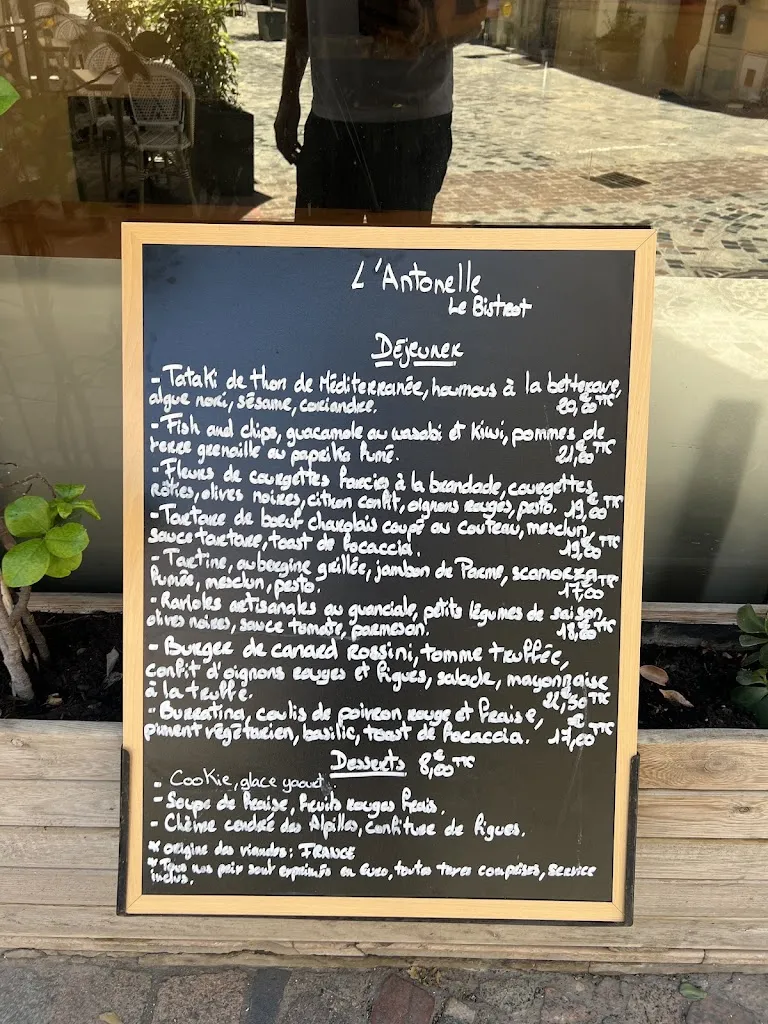 L'Antonelle
Le Bistrot
Déjeuner
- Tataki de thon de Méditerranée, houmous à la betterave,
algue nori, sésame, coriandre. 20,00€ TTC
- Fish and chips, guacamole au wasabi et Kiwi, pommes de
terre grenaille au paprika fumé. 21,00€ TTC
- Fleurs de courgettes farcies à la brandade, courgettes
rôties, olives noires, citron confit, oignons rouges, pesto. 19,00€ TTC
- Tartare de boeuf charolais coupé au couteau, mesclun,
sauce tartare, toast de focaccia. 19,00€ TTC
- Tartine, aubergine grillée, jambon de Parme, scamorza
fumée, mesclun, pesto. 17,00€ TTC
- Ravioles artisanales au guanciale, petits légumes de saison,
olives noires, sauce tomate, parmesan. 18,00€ TTC
- Burger de canard Rossini, tomme truffée,
confit d'oignons rouges et figues, salade, mayonnaise
à la truffe. 22,50€ TTC
- Burratina, coulis de poivron rouge et fraise,
piment végétarien, basilic, toast de focaccia. 17,00€ TTC
Desserts 8,00€ TTC
- Cookie, glace yaourt.
- Soupe de fraise, fruits rouges frais.
- Chèvre cendré des Alpilles, confiture de figues.
* origine des viandes : FRANCE
* Tous nos prix sont exprimés en Euro, toutes taxes comprises, service
inclus.